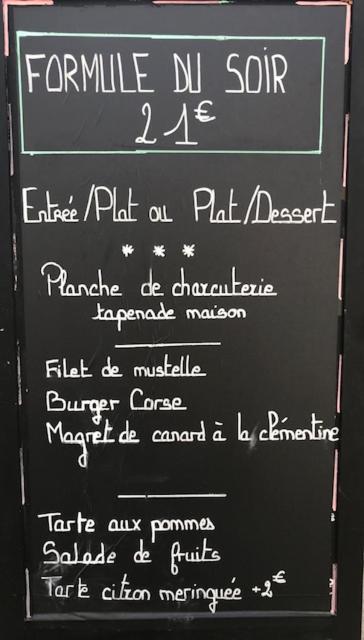 FORMULE DU SOIR
21€
Entrée/Plat ou Plat/Dessert
* * *
Planche de charcuterie
tapenade maison
Filet de mustelle
Burger Corse
Magret de canard à la clémentine
Tarte aux pommes
Salade de fruits
Tarte citron meringuée +2€